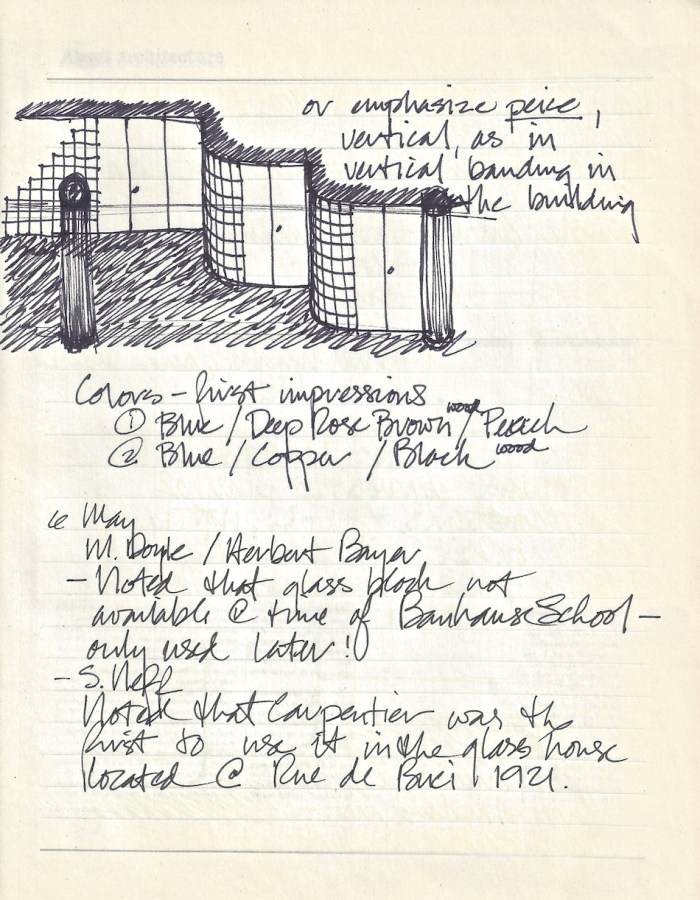 or emphasize
vertical, as in
vertical banding in
the building
Colors - first impressions
① Blue / Deep Rose Brown wood / Peach
② Blue / Copper / Black wood
6 May
M. Doyle / Herbert Bayer
- Noted that glass block not
available @ time of Bauhaus School -
only used later!
- S. Neff
Noted that Carpentier was the
first to use it in the glass house
located @ Rue de Buci, 1921.